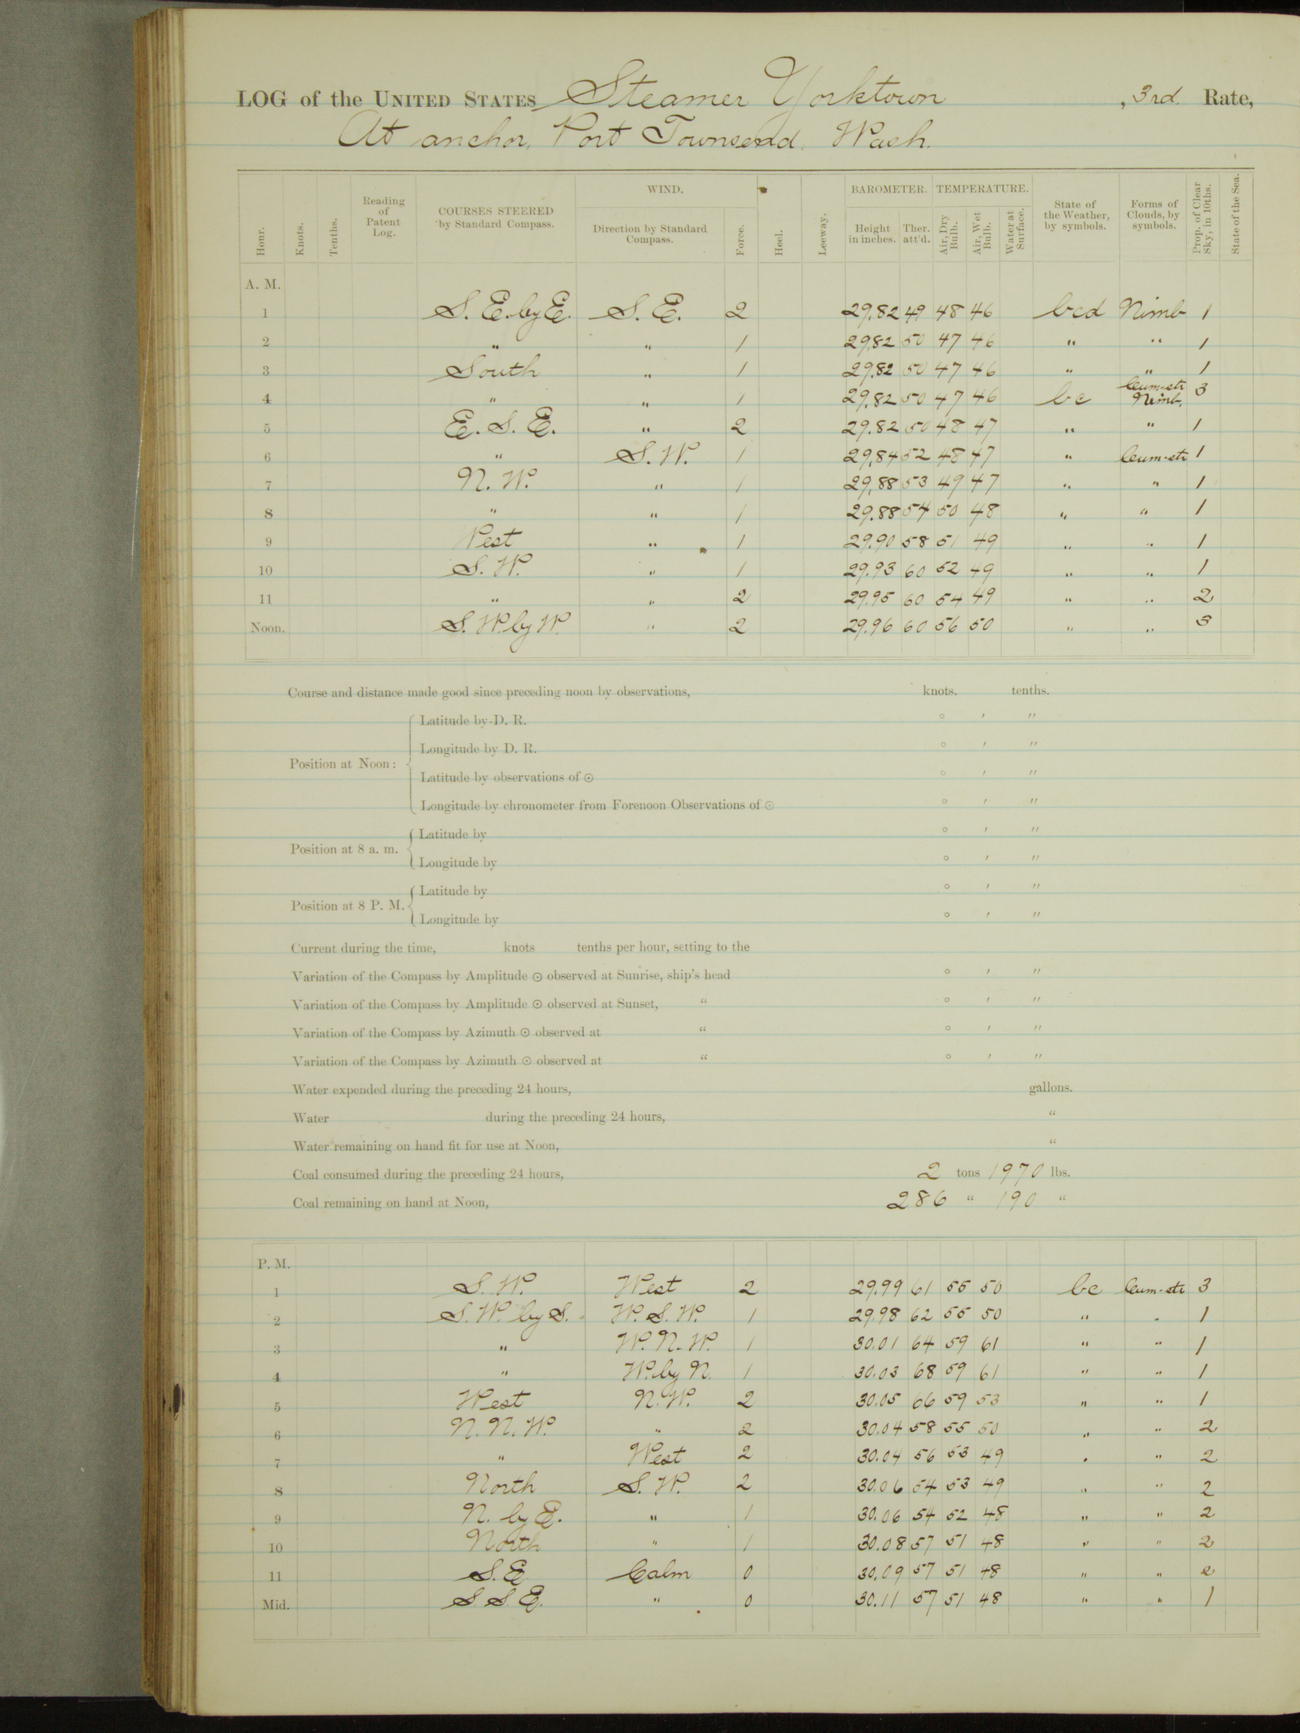 LOG of the UNITED STATES Steamer Yorktown , 3rd. Rate,
At anchor, Port Townsend. Wash.
Hour. Knots. Tenths. Reading of Patent Log. COURSES STEERED by Standard Compass. WIND. Direction by Standard Compass. Force. Heel. Leeway. BAROMETER. Height in inches. Ther. att'd. TEMPERATURE. Air, Dry Bulb. Air, Wet Bulb. Water at Surface. State of the Weather, by symbols. Forms of Clouds, by symbols. Prop. of Clear Sky, in 10ths. State of the Sea.
A. M.
1 S. E. by E. S. E. 2 29.82 49 48 46 bcd Nimb 1
2 " " 1 29.82 50 47 46 " " 1
3 South " 1 29.82 50 47 46 " " 1
4 " " 1 29.82 50 47 46 bc Cum-str Nimb. 3
5 E. S. E. " 2 29.82 50 48 47 " " 1
6 " S. W. 1 29.84 52 48 47 " Cum-str 1
7 N. W. " 1 29.88 53 49 47 " " 1
8 " " 1 29.88 54 50 48 " " 1
9 West " 1 29.90 58 51 49 " " 1
10 S. W. " 1 29.93 60 52 49 " " 1
11 " " 2 29.95 60 54 49 " " 2
Noon. S. W. by W. " 2 29.96 60 56 50 " " 3
Course and distance made good since preceding noon by observations, knots. tenths.
Latitude by D. R. ° ′ ″
Longitude by D. R. ° ′ ″
Position at Noon:
Latitude by observations of ☉ ° ′ ″
Longitude by chronometer from Forenoon Observations of ☉ ° ′ ″
Position at 8 a. m. Latitude by ° ′ ″
Longitude by ° ′ ″
Position at 8 P. M. Latitude by ° ′ ″
Longitude by ° ′ ″
Current during the time, knots tenths per hour, setting to the
Variation of the Compass by Amplitude ☉ observed at Sunrise, ship's head ° ′ ″
Variation of the Compass by Amplitude ☉ observed at Sunset, " ° ′ ″
Variation of the Compass by Azimuth ☉ observed at " ° ′ ″
Variation of the Compass by Azimuth ☉ observed at " ° ′ ″
Water expended during the preceding 24 hours, gallons.
Water during the preceding 24 hours, "
Water remaining on hand fit for use at Noon, "
Coal consumed during the preceding 24 hours, 2 tons 1970 lbs.
Coal remaining on hand at Noon, 286 " 190 "
P. M.
1 S. W. West 2 29.99 61 55 50 bc Cum-str 3
2 S. W. by S. W. S. W. 1 29.98 62 55 50 " " 1
3 " W. N. W. 1 30.01 64 59 61 " " 1
4 " W. by N. 1 30.03 68 59 61 " " 1
5 West N. W. 2 30.05 66 59 53 " " 1
6 N. N. W. " 2 30.04 58 55 50 " " 2
7 " West 2 30.04 56 53 49 " " 2
8 North S. W. 2 30.06 54 53 49 " " 2
9 N. by E. " 1 30.06 54 52 48 " " 2
10 North " 1 30.08 57 51 48 " " 2
11 S. E Calm 0 30.09 57 51 48 " " 2
Mid. S S E. " 0 30.11 57 51 48 " " 1